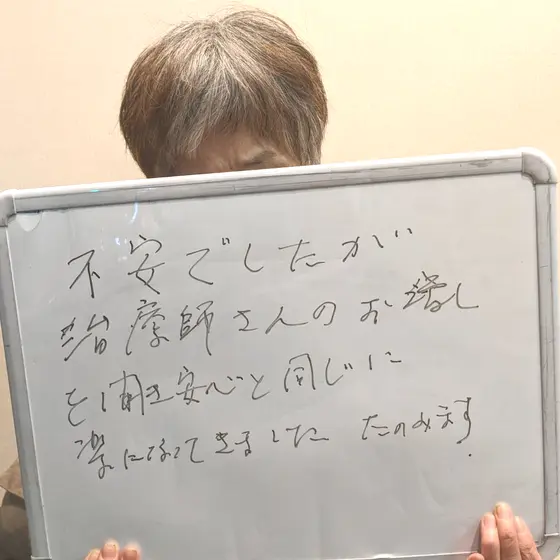 不安でしたが
治療師さんのお話し
を聞き安心と同じに
楽になってきました たのみます.